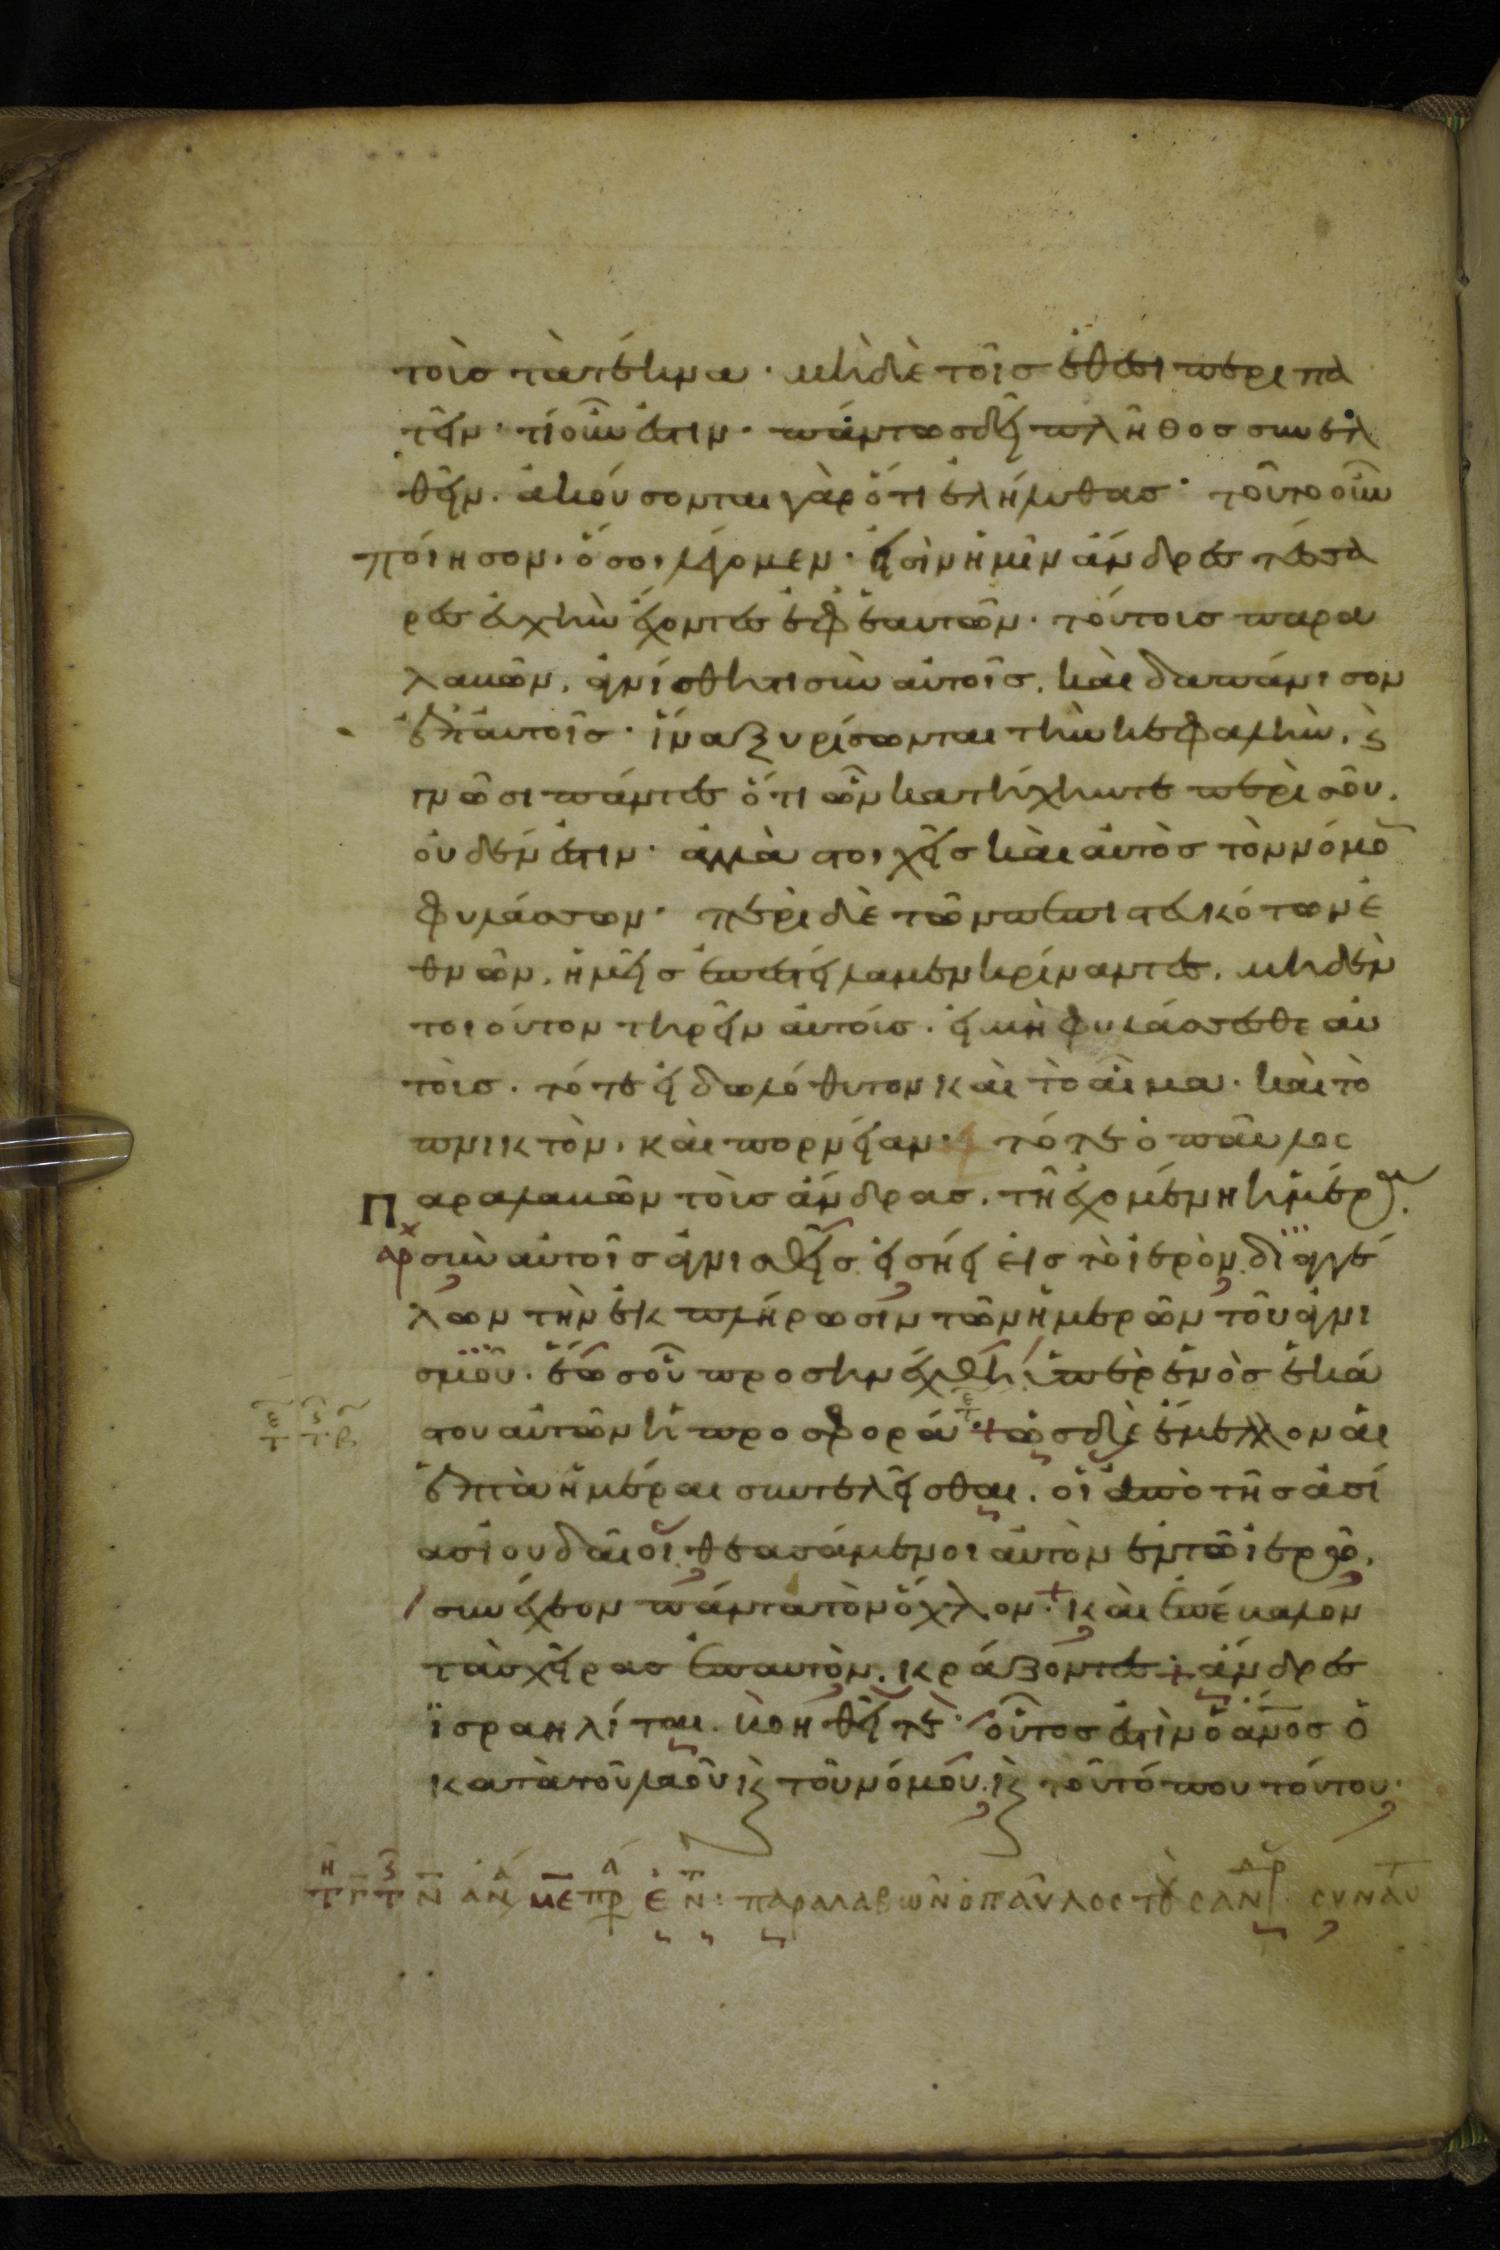 τοὶσ τὰ τέκνα · μηδὲ τοῖσ ἔθεσι περιπα
τεῖν · τί οὖν ἐστιν · πάντωσ δεῖ πλῆθοσ συνελ
θεῖν · ἀκούσονται γὰρ ὅτι ἐλήλυθασ · τοῦτο οὖν
ποίησον, ὅ σοι λέγομεν · εἰσὶν ἡμῖν ἄνδρεσ τέσσα
ρεσ εὐχὴν ἔχοντεσ ἐφ ἑαυτῶν · τούτοισ παρα
λαβὼν, ἁγνίσθητι σὺν αὐτοῖσ, καὶ δαπάνισον
ἐπ αυτοῖσ · ἵνα ξυρίσωνται τὴν κεφαλὴν, ϗ
γνῶσι πάντεσ ὅτι ὧν κατήχηντε περὶ σοῦ,
οὐδέν ἐστιν · ἀλλὰ στοιχεῖσ καὶ αὐτὸσ τὸν νόμο
φυλάσσων · περὶ δὲ τῶν πεπιστευκότων ἐ
θνῶν, ἡμεῖσ ἐπεστείλαμεν κρίναντεσ, μηδὲν
τοιούτον τηρεῖν αὐτοίσ · εἰ μὴ φυλάσσεσθε αὐ
τοὶσ · τό τε εἰδωλόθυτον καὶ τὸ αἷμα · καὶ τὸ
πνικτὸν, καὶ πορνείαν · τότε ὁ παῦλος
Παραλαβὼν τοὶσ ἄνδρασ, τῆ ἐχομένη ἡμέρα
αρχ σὺν αὐτοῖσ ἁγνισθεῖσ εἰσήει εἰσ τὸ ἱερὸν διαγγέ
λων τὴν ἐκπλήρωσιν τῶν ἡμερῶν τοῦ ἁγνι
σμοῦ · ἕωσ οὗ προσηνέχθη ὑπὲρ ἑνὸσ ἑκά
στου αὐτῶν ἡ προσφορά · + ὡσ δὲ ἔμελλον αἱ
ἑπτὰ ἡμέραι συντελεῖσθαι, οἱ ἀπὸ τῆσ ἀσί
ασ ἰουδαῖοι θεασάμενοι αὐτὸν ἐν τῶ ἱερῶ,
συνέχεον πάντα τὸν ὄχλον · + καὶ ἐπέβαλον
τὰσ χεῖρασ ἐπ αυτὸν, κράζοντεσ · + ἄνδρεσ
ϊσραηλίται, βοηθεῖτε · οὗτοσ ἐστὶν ὁ ἄνοσ ὁ
κατὰ τοῦ λαοῦ ϗ τοῦ νόμου, ϗ τοῦ τόπου τούτου ·
παραλαβὼν ὁ παῦλος τοὺς ἀνδρ συν αυτ